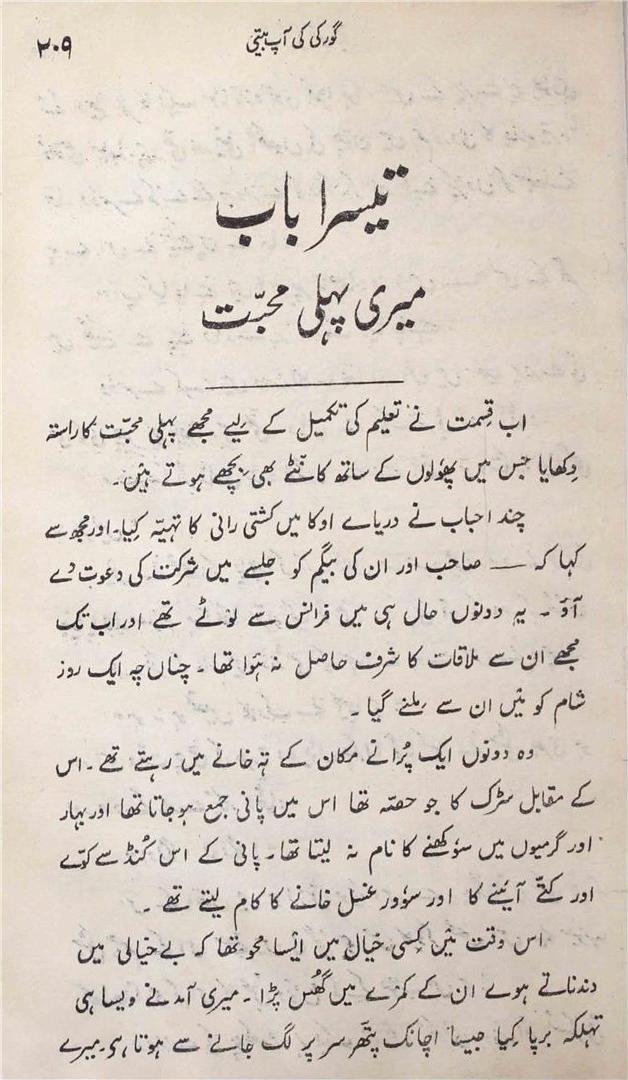 ۲۰۹
گورکی کی آپ بیتی
تیسرا باب
میری پہلی محبّت
اب قِسمت نے تعلیم کی تکمیل کے لیے مجھے پہلی محبّت کا راستہ
دِکھایا جس میں پھولوں کے ساتھ کانٹے بھی بچھے ہوتے ہیں۔
چند احباب نے دریاے اوکا میں کشتی رانی کا تہیّہ کِیا۔ اور مجھ سے
کہا کہ — صاحب اور ان کی بیگم کو جلسے میں شرکت کی دعوت دے
آؤ۔ یہ دونوں حال ہی میں فرانس سے لوٹے تھے اور اب تک
مجھے ان سے ملاقات کا شرف حاصل نہ ہوا تھا۔ چناں چہ ایک روز
شام کو مَیں ان سے مِلنے گیا۔
وہ دونوں ایک پُرانے مکان کے تہ خانے میں رہتے تھے۔ اس
کے مقابل سڑک کا جو حصّہ تھا اس میں پانی جمع ہوجاتا تھا اور بہار
اور گرمیوں میں سوکھنے کا نام نہ لیتا تھا۔ پانی کے اس کُنڈ سے کوّے
اور کتّے آئینے کا اور سؤور غسل خانے کا کام لیتے تھے۔
اس وقت مَیں کِسی خیال میں ایسا محو تھا کہ بےخیالی میں
دندناتے ہوے ان کے کمرے میں گھُس پڑا۔ میری آمد نے ویسا ہی
تہلکہ برپا کِیا جیسا اچانک پتّھر سر پر لگ جانے سے ہوتا ہی۔ میرے